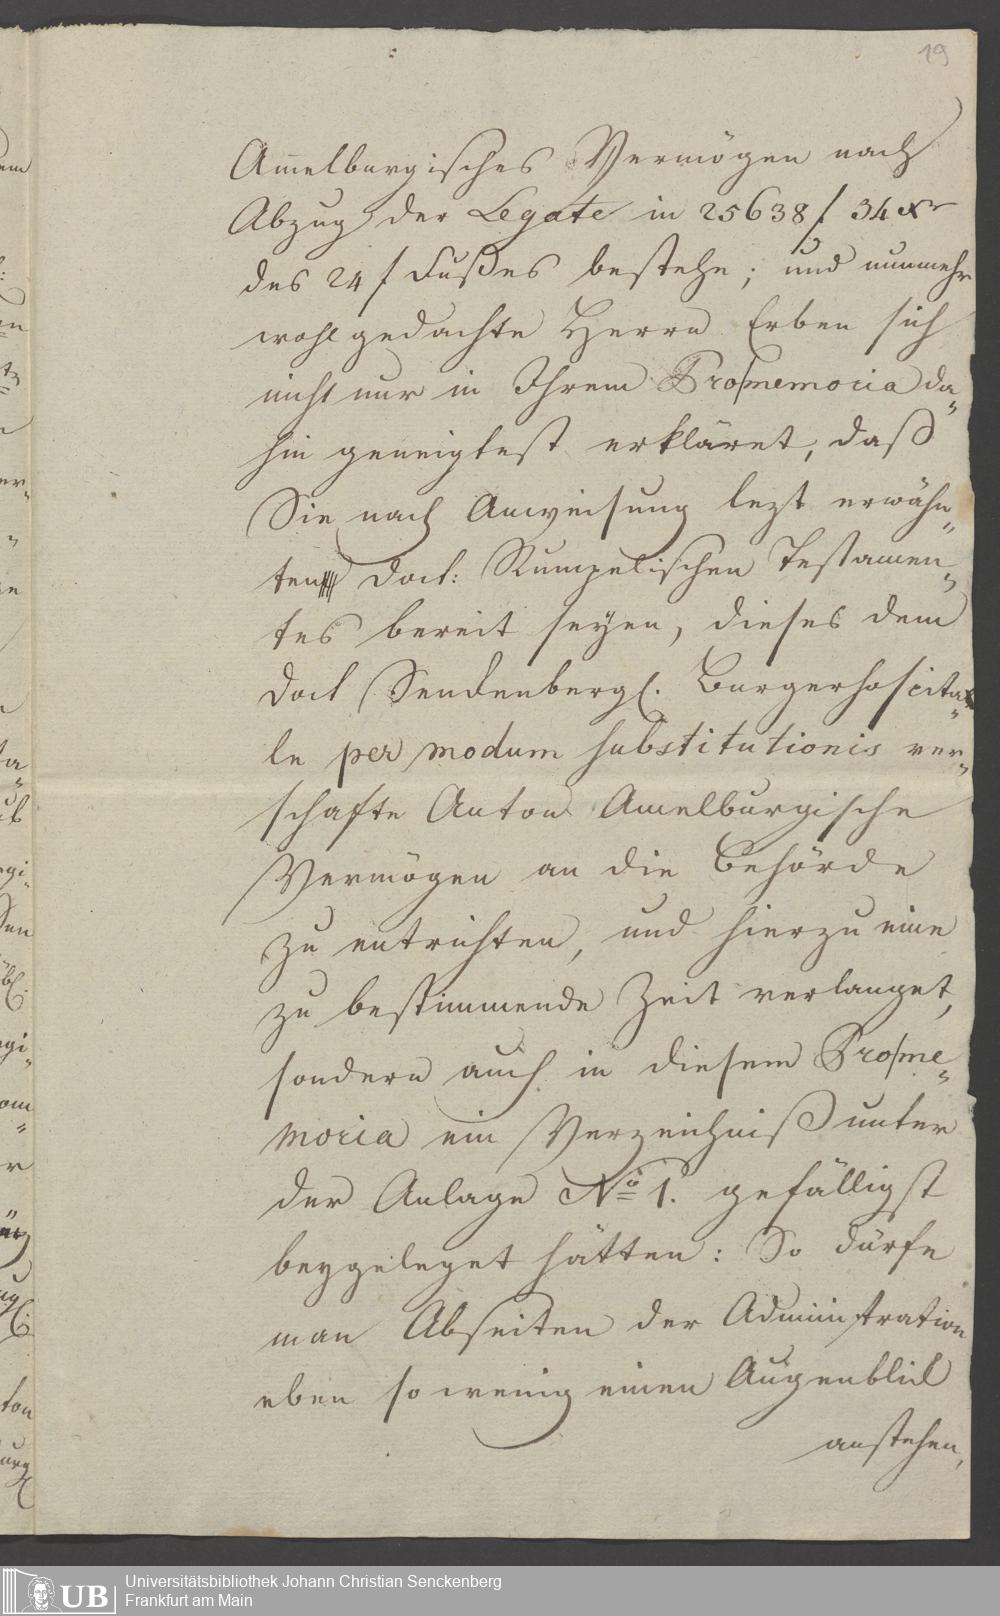 19
Am̅elburgisches Vermögen nach
Abzug der Legate in 25638 f. 34 Xr
des 24 f Fußes bestehe; und nunmehr
wohlgedachte Herrn Erben sich
nicht nur in Ihrem Promemoria da„
hin geneigtest erkläret, daß
Sie nach Anweisung lezt erwähn„
ten Doct: Rumpelischen Testamen„
tes bereit seyen, dieses dem
Doct Senckenbergl. Burgerhospita„
le per modum substitutionis ver„
schafte Anton Amelburgische
Vermögen an die Behörde
zu entrichten, und hierzu eine
zu bestimmende Zeit verlanget,
sondern auch in diesem Prome„
moria ein Verzeichniß unter
der Anlage No 1. gefälligst
beygeleget hätten: So dürfe
man Abseiten der Administration
eben so wenig einen Augenblick
anstehen,
UB
Universitätsbibliothek Johann Christian Senckenberg
Frankfurt am Main